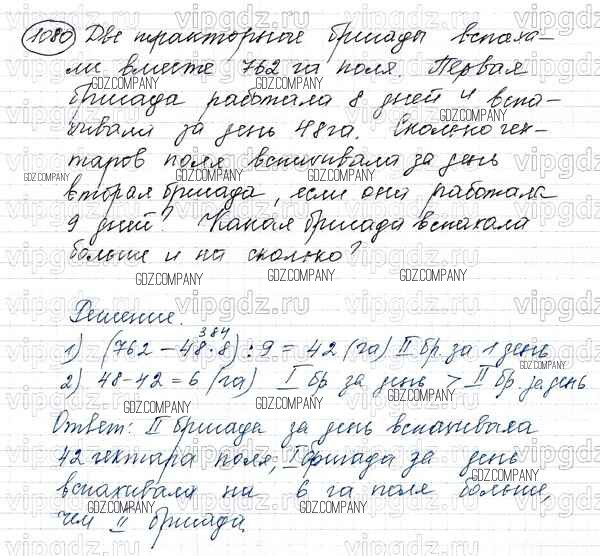 1080 Две тракторные бригады вспаха-
ли вместе 762 га поля. Первая
бригада работала 8 дней и вспа-
хивала за день 48га. Сколько гек-
таров поля вспахивала за день
вторая бригада, если она работала
9 дней? Какая бригада вспахала
больше и на сколько?
Решение.
384
1) (762 – 48·8) : 9 = 42 (га) II бр. за 1 день
2) 48-42 = 6 (га) I бр. за день > II бр. за день
Ответ: II бригада за день вспахивала
42 гектара поля; I бригада за день
вспахивала на 6 га поля больше,
чем II бригада.
GDZ.COMPANY
vipgdz.ru